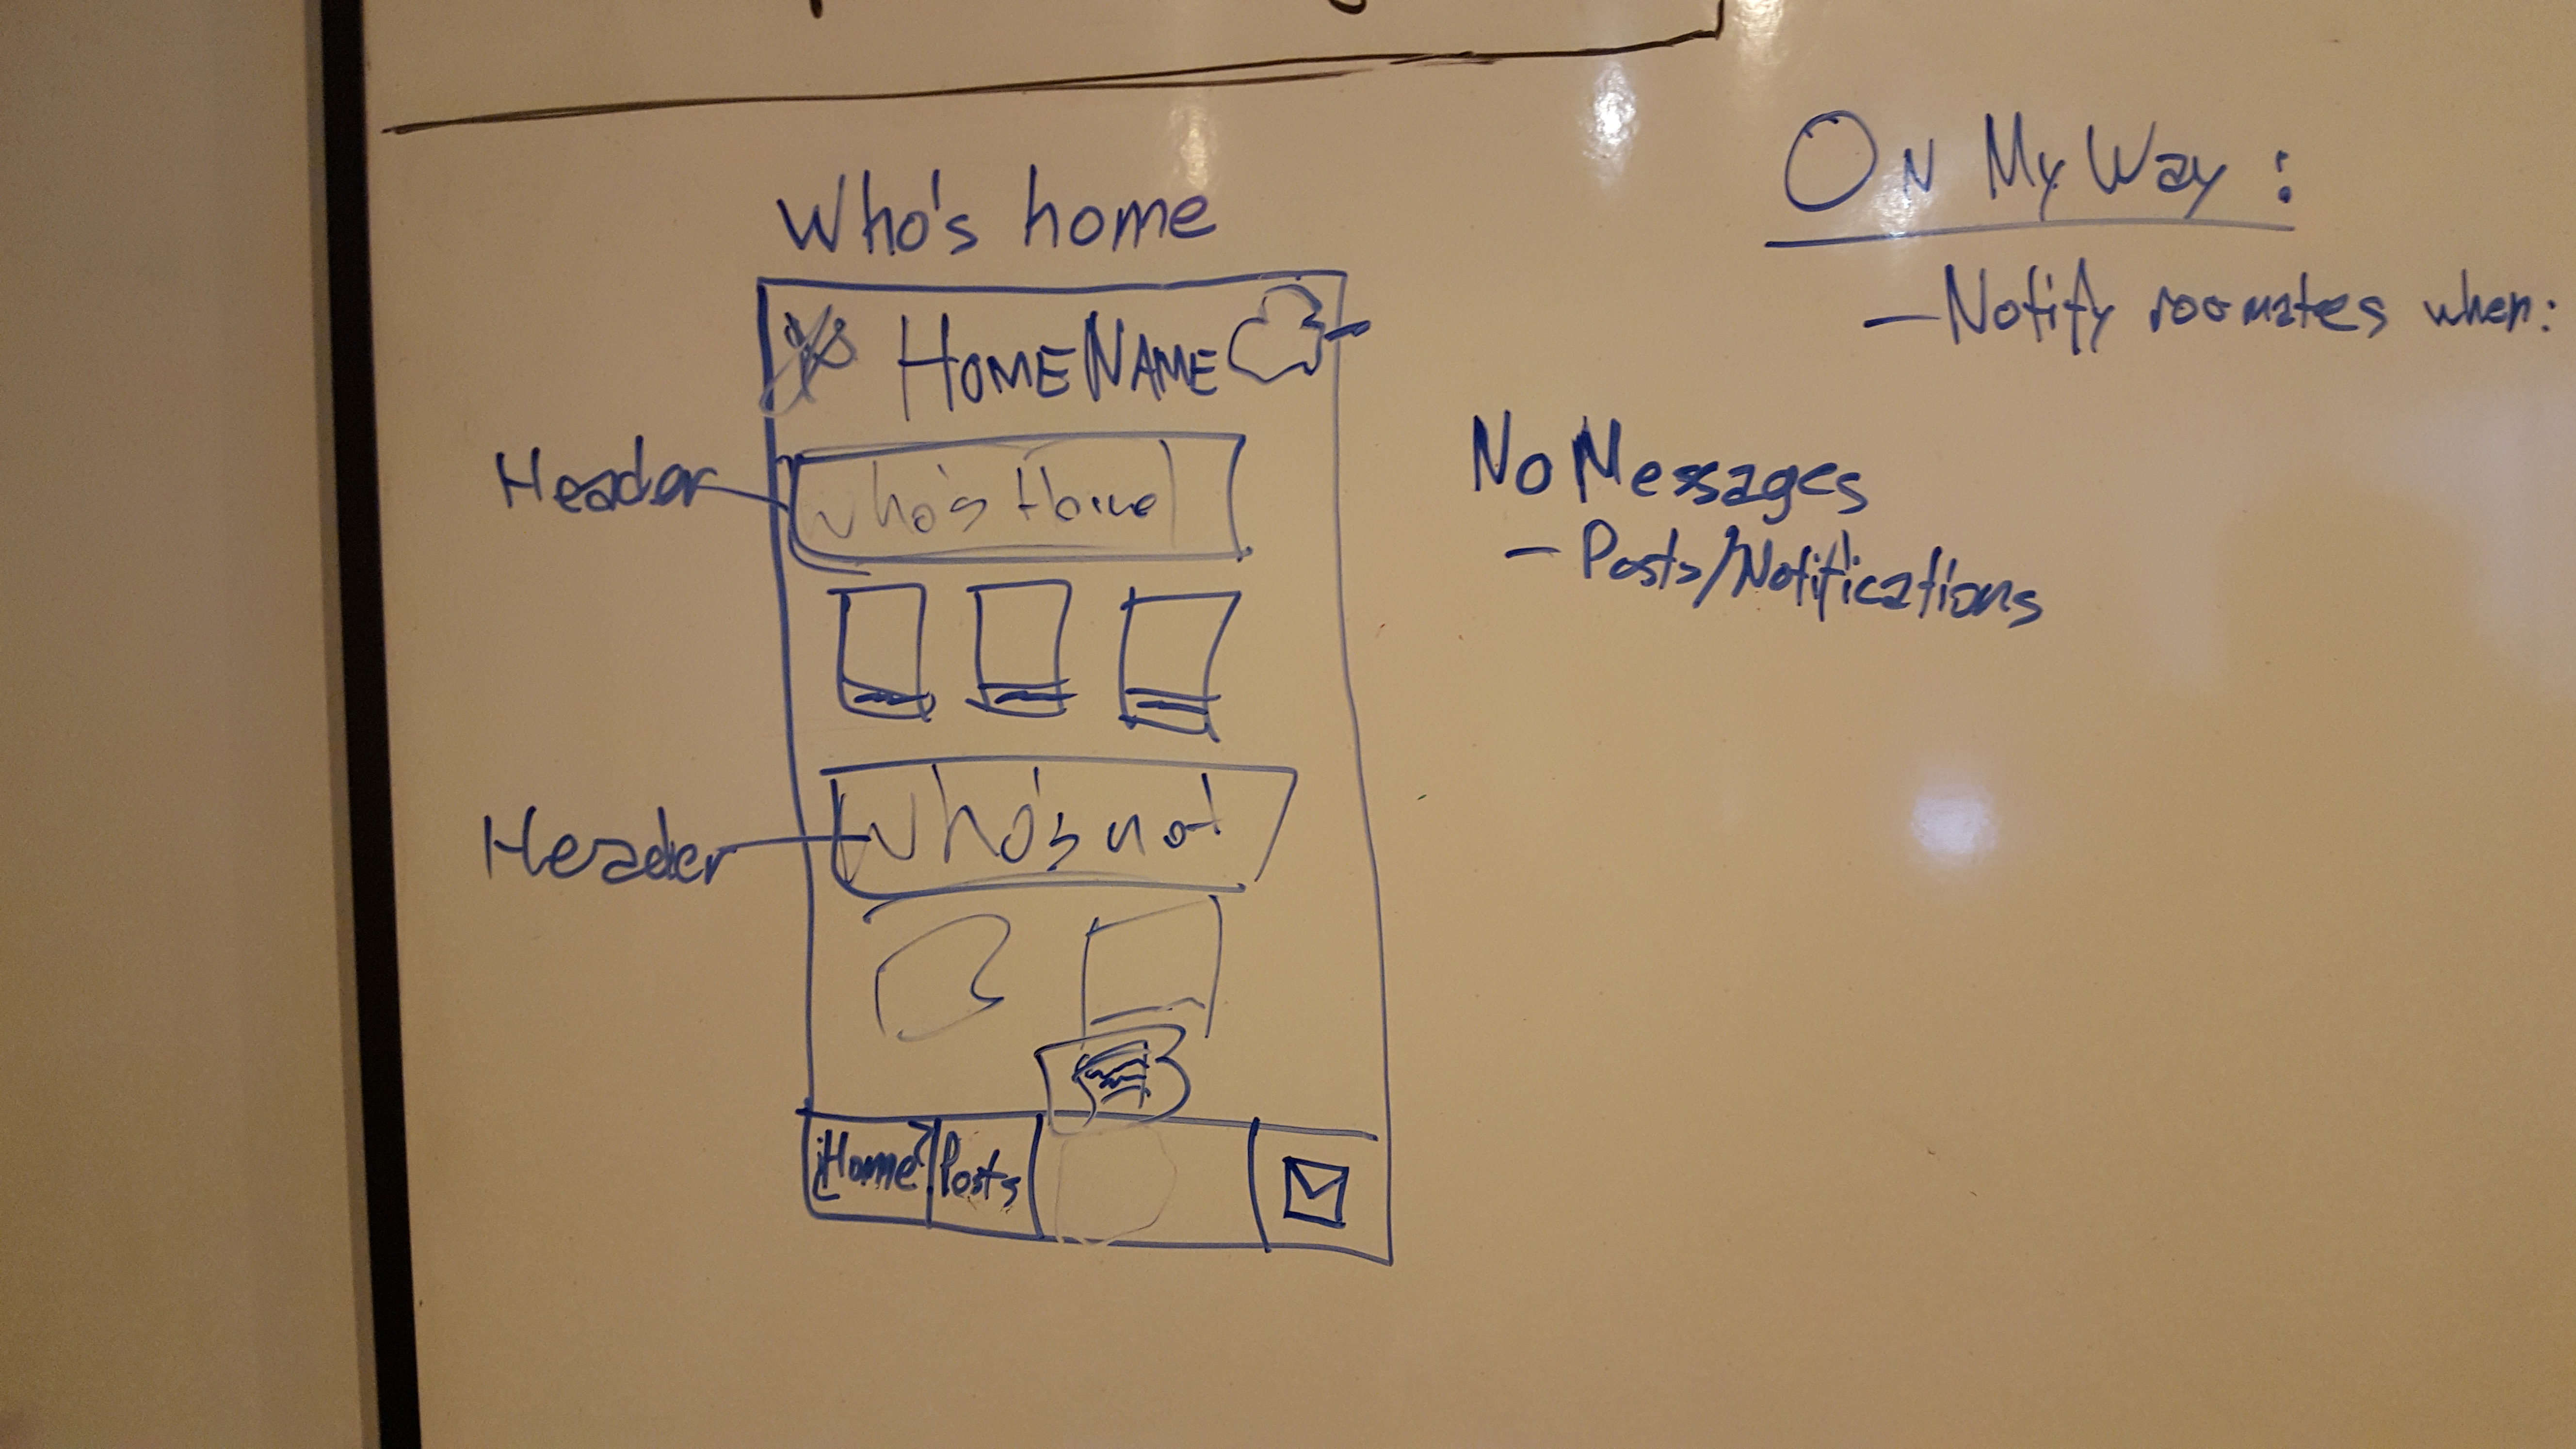 Who's home
HOMENAME
Header
Who's Home
Header
Who's not
Home
Posts
ON My Way :
- Notify roomates when:
No Messages
- Posts/Notifications